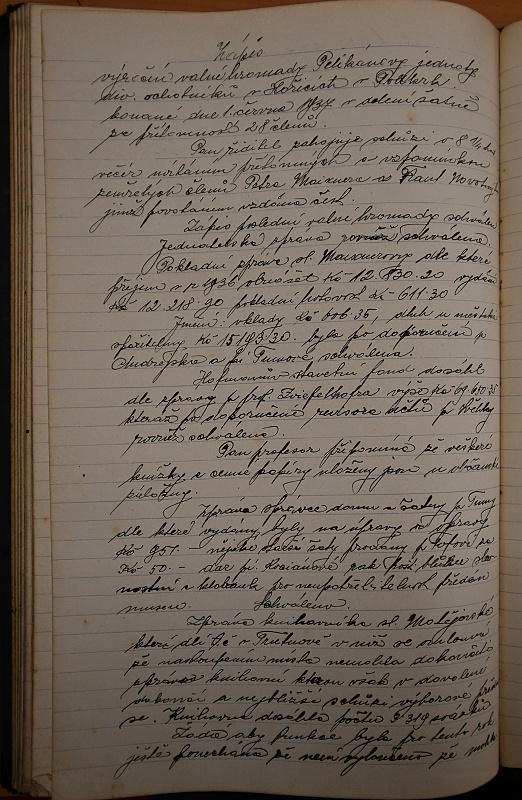 Zápis
výroční valné hromady Pelikánovy jednoty
div. ochotníků v Hořicích v Podkrk.
konané dne 1. června 1937 v dolení šatně
za přítomnosti 28 členů.
Pan ředitel zahajuje schůzi o 8 1/4 hod
večer uvítáním přítomných a vzpomínkou
zemřelých členů Petra Maixnera a Novotný
jimž povstáním vzdána čest.
Zápis poslední valné hromady schválen
Jednatelská zpráva schválena.
Pokladní zpráva sl. Maixnerovy dle které
příjem v r. 1936 obnášel Kč 12.830.20 vydání
Kč 12.218.90 pokladní hotovost Kč 611.30
Jmění: vklady Kč 606.35, dluh u městské
spořitelny Kč 15193.30. byla po doporučení p
Ondrejska a sl. Tumové schválena.
Hofmanův stavební fond dosáhl
dle zprávy p. prof. výše Kč 69.650.35
kteráž po doporučení revisora účtů p.
rovněž schválena.
Pan profesor připomíná že veškeré
knížky a cenné papíry uloženy jsou u občanské
záložny.
Zpráva správce domu a šatny p. Tumy
dle které vydány byly na úpravy a opravy
Kč 951.- nějaké starší šaty prodány p. za
Kč 50.- dar pí. pak
a klobouk pro neupotřebitelnost předán
museu. Schváleno.
Zpráva knihovníka sl. Matějovské
která dlí t.č. v Trutnově v níž se omlouvá
že nastoupením místa nemohla dokončiti
knihovní však v dovolené
dokončí a nejbližší schůzi výborové
se. Knihovna dosáhla počtu 3319 svazků
Žádá aby funkce byla pro tento rok
ještě ponechána že není vyloučeno že